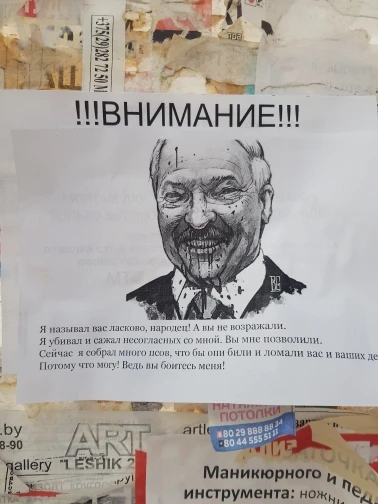 +375(29)282 72 50
!!!ВНИМАНИЕ!!!
Я называл вас ласково, народец! А вы не возражали.
Я убивал и сажал несогласных со мной. Вы мне позволили.
Сейчас я собрал много псов, что бы они били и ломали вас и ваших де
Потому что могу! Ведь вы боитесь меня!
НАТЯЖНЫЕ
ПОТОЛКИ
80 29 888 88 34
80 44 555 51
.by
8-90
ART
gallery "LESHIK 2
Маникюрного и пед
инструмента: ножн